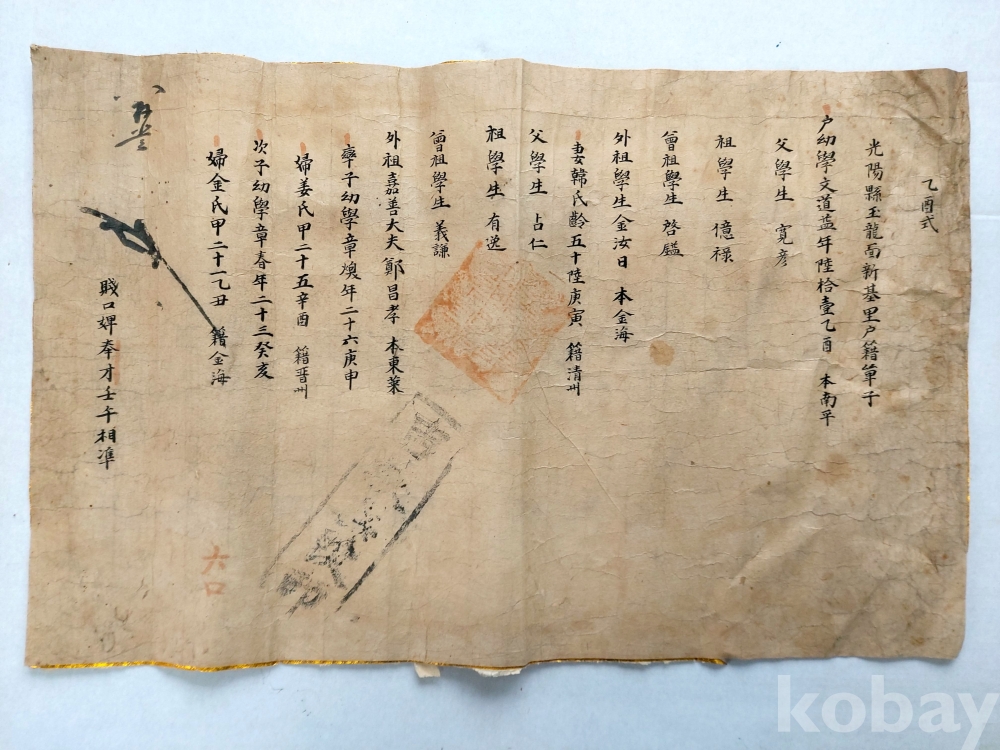 乙酉式
光陽縣玉龍面新基里户籍單子
户幼學文道益年陸拾壹乙酉 本南平
父學生 寬彦
祖學生 億祿
曾祖學生 啓鎰
外祖學生金汝日 本金海
妻韓氏齡五十陸庚寅 籍淸州
父學生 占仁
祖學生 有逸
曾祖學生 義謙
外祖嘉善大夫鄭昌孝 本東萊
率子幼學章煥年二十六庚申
婦姜氏甲二十五辛酉 籍晋州
次子幼學章春年二十三癸亥
婦金氏甲二十一乙丑 籍金海
賤口婢奉才壬午相準
六口
kobay